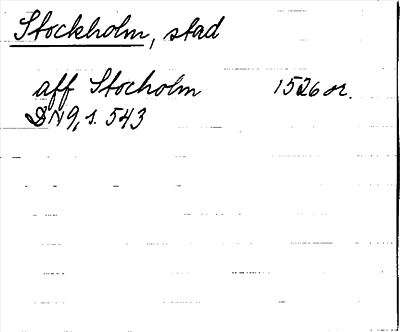 Stockholm, stad
aff Stocholm 1526 or.
DN 9, s. 543